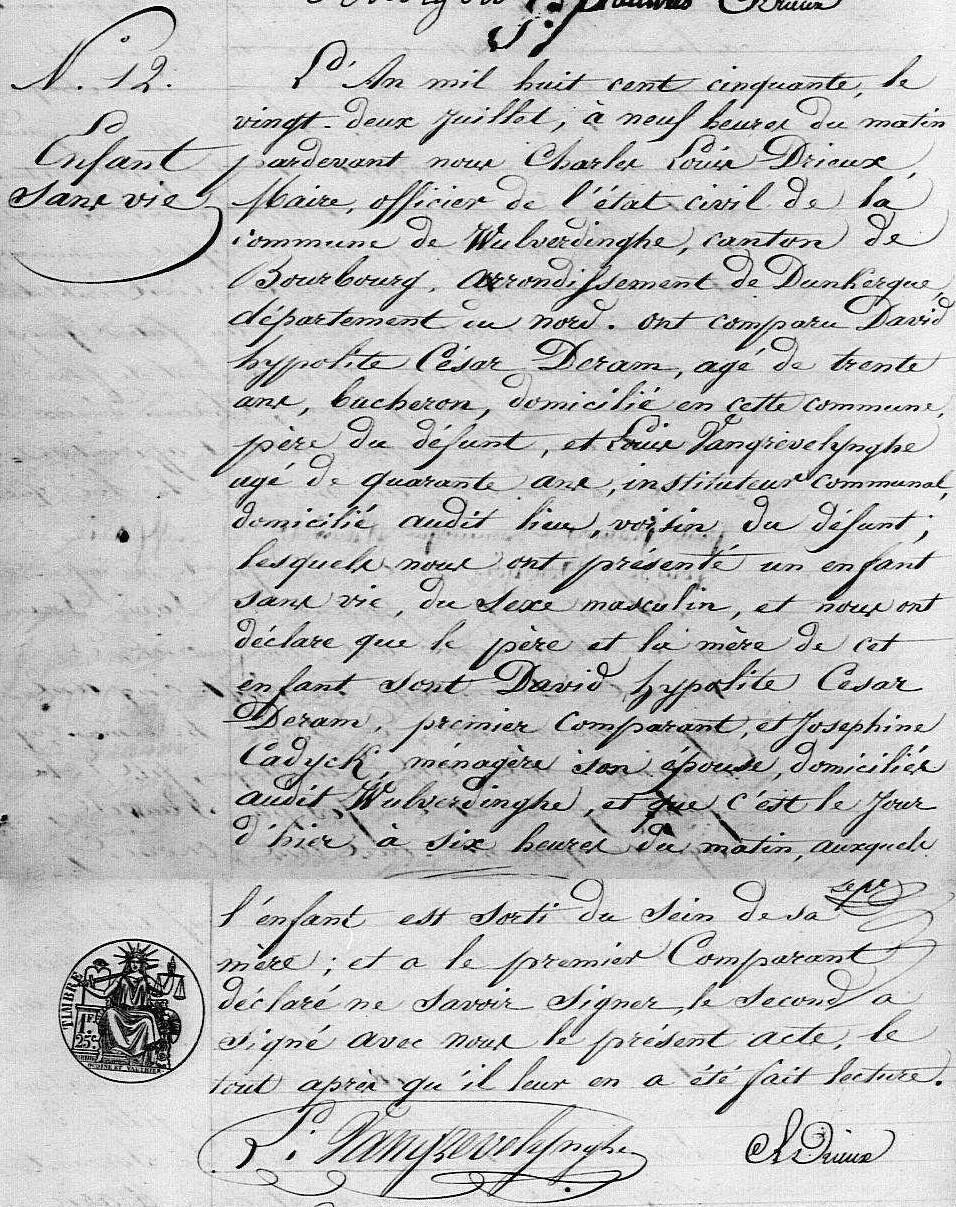 Drieux
N.° 12.
Enfant
sans vie
L'An mil huit cent cinquante, le
vingt-deux Juillet, à neuf heures du matin
pardevant nous Charles Louis Drieux,
Maire, officier de l'état civil de la
commune de Wulverdinghe, canton de
Bourbourg, arrondissement de Dunkerque,
département du nord. ont comparu David
hypolite César Deram, agé de trente
ans, bucheron, domicilié en cette commune,
père du défunt, et Louis Vangrevelynghe
agé de quarante ans, instituteur communal,
domicilié audit lieu, voisin du défunt;
lesquels nous ont présenté un enfant
sans vie, du sexe masculin, et nous ont
déclare que le père et la mère de cet
enfant sont David hypolite Cesar
Deram, premier comparant, et Josephine
Cadyck, ménagère son épouse, domiciliés
audit Wulverdinghe, et que c'est le Jour
d'hier à six heures du matin, auxquels
l'enfant est sorti du sein de sa
mère; et a le premier Comparant
déclaré ne savoir signer, le second a
signé avec nous le présent acte, le
tout après qu'il leur en a été fait lecture.
TIMBRE
1F.
25c.
L. Vangrevelynghe
Ch Drieux